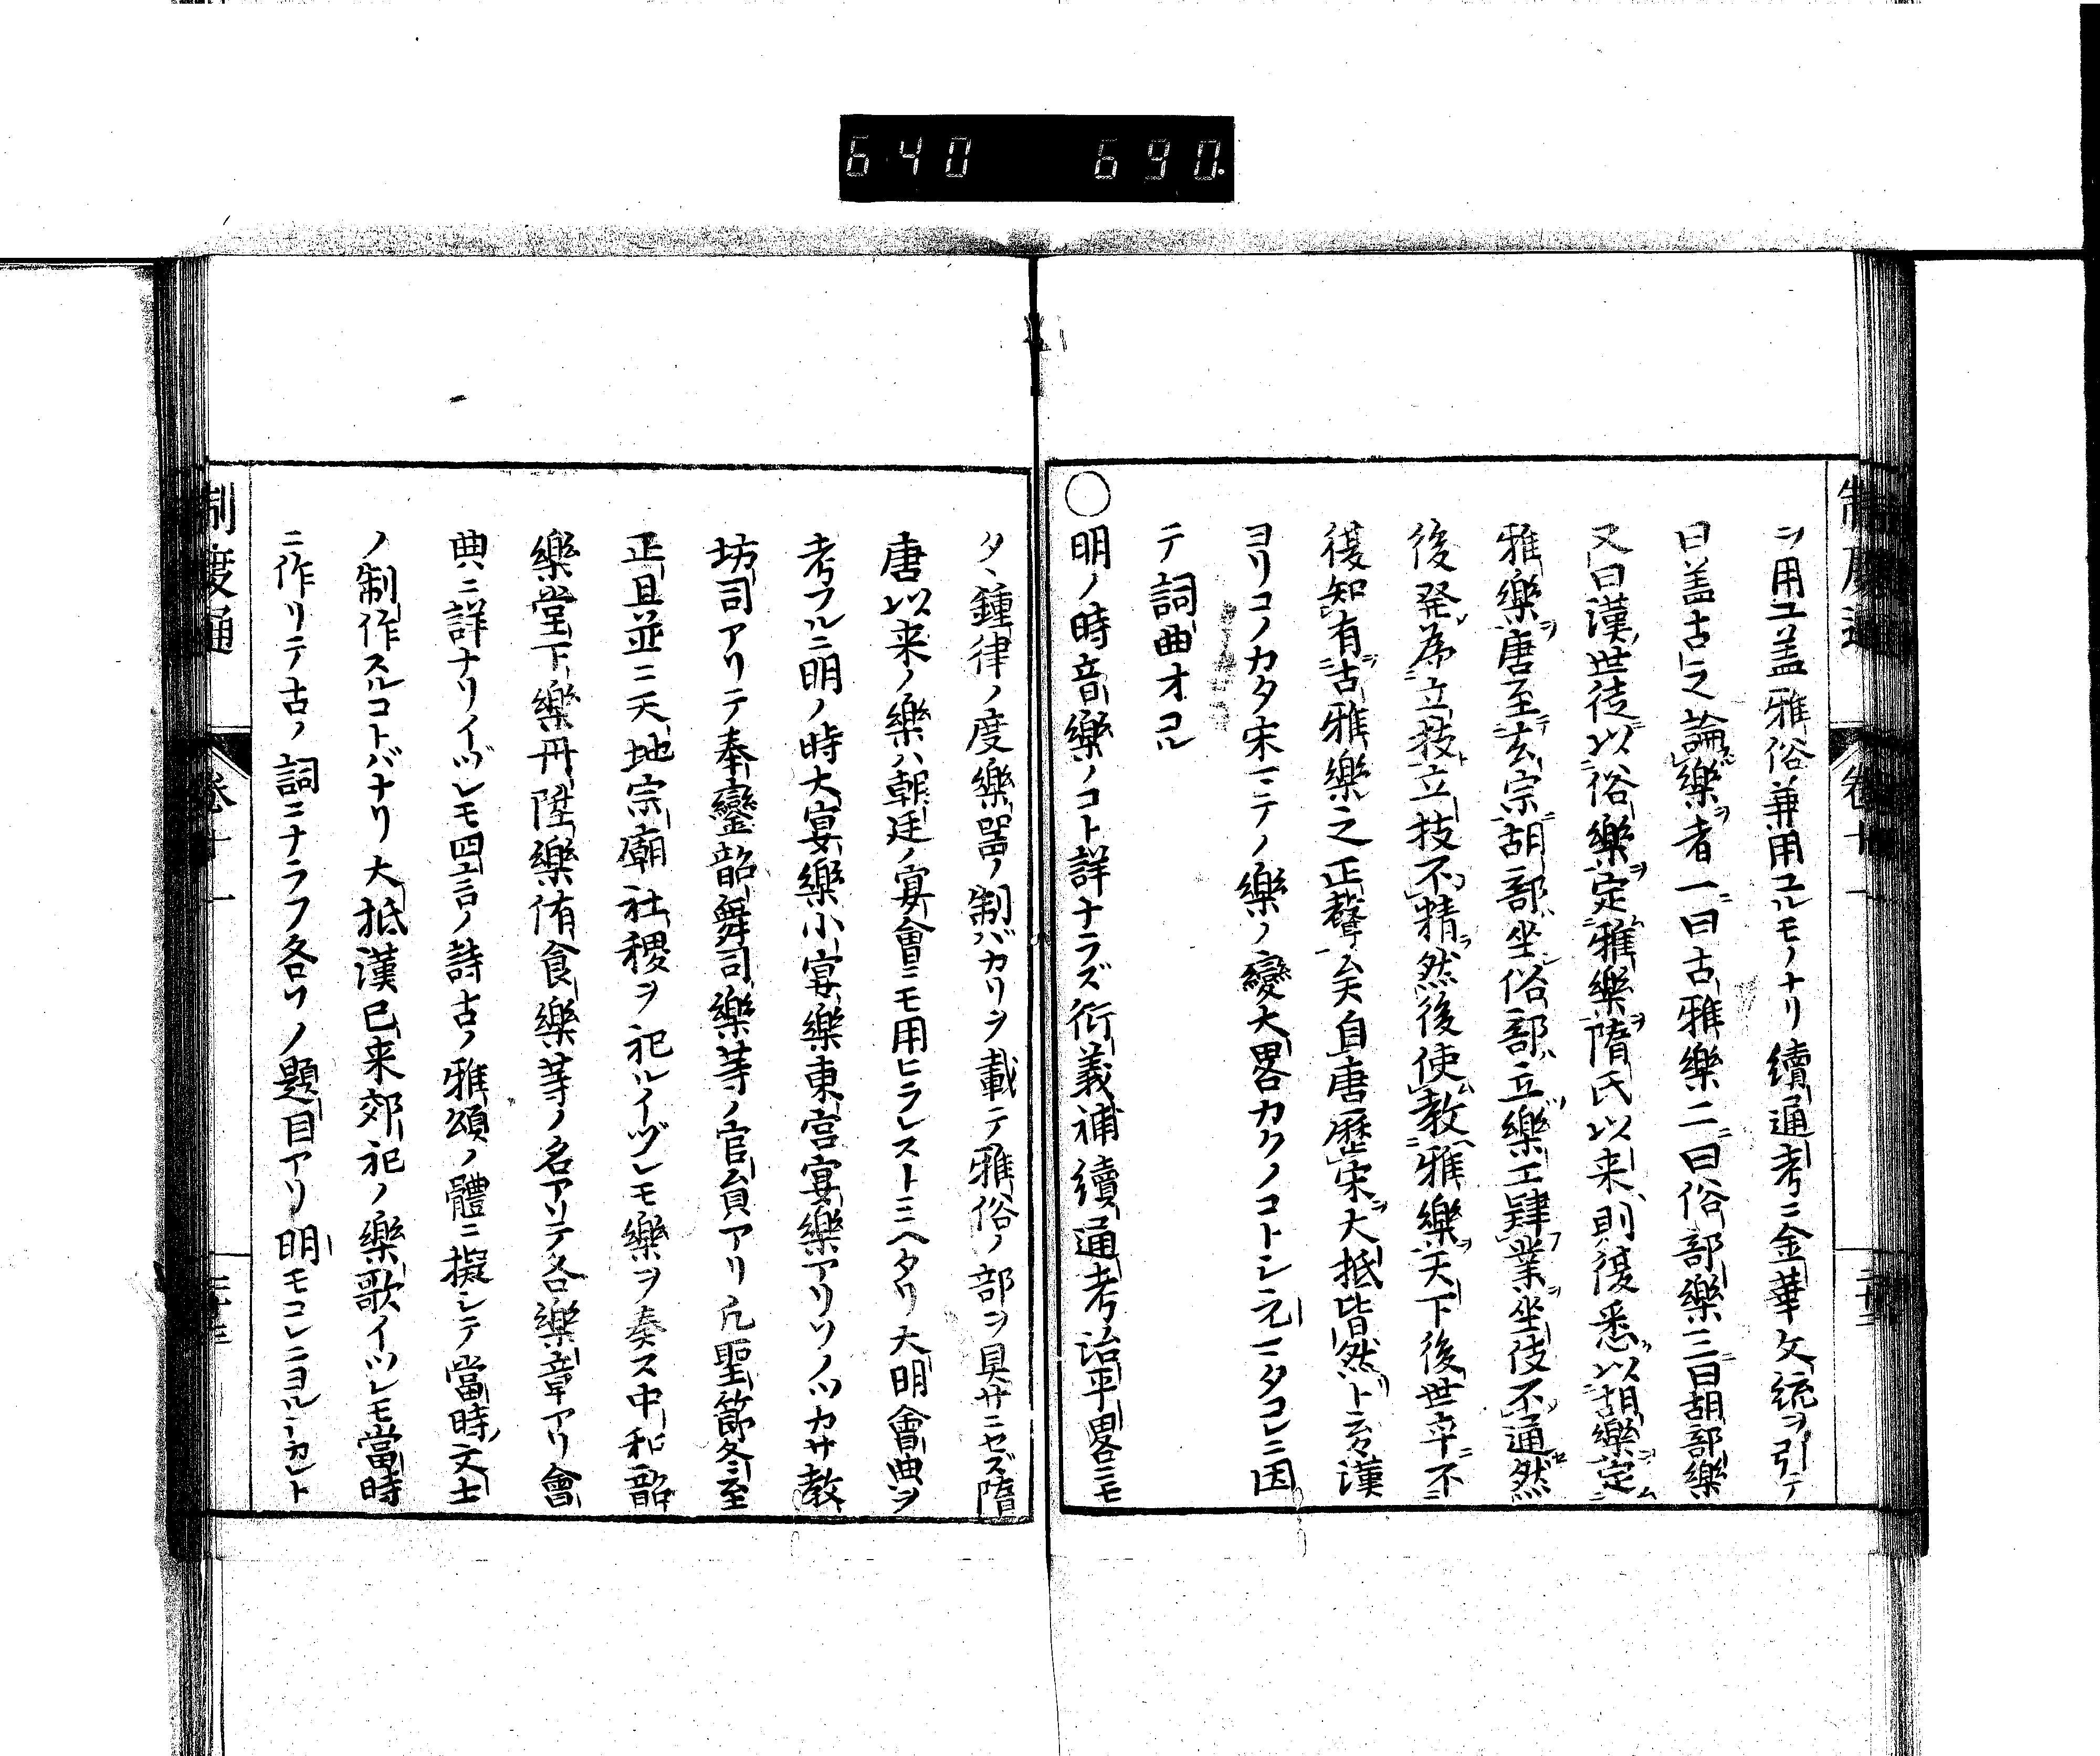 640 690.
制度通 卷十一
ヲ用ユ盖雅俗兼用ユルモノナリ續通考ニ金華文統ヲ引テ
曰盖古之論樂者一曰古雅樂二曰俗部樂三曰胡部樂
又曰漢世徒以俗樂定雅樂隋氏以来則復悉以胡樂定
雅樂唐至玄宗胡部坐俗部立樂工肄業坐伎不通然
後発為立技立技不精然後使教雅樂天下後世卒不
復知有古雅樂之正聲矣自唐歷宋大抵皆然ト云漢
ヨリコノカタ宋マテノ樂ノ變大畧カクノコトシ元マタコレニ因
テ詞曲オコル
○明ノ時音樂ノコト詳ナラズ衍義補續通考治平畧ニモ
タヽ鍾律ノ度樂噐ノ制バカリヲ載テ雅俗ノ部ヲ具サニセズ隋
唐以来ノ樂ハ朝廷ノ宴會ニモ用ヒラレストミヘタリ大明會典ヲ
考フルニ明ノ時大宴樂小宴樂東宮宴樂アリソノツカサ教
坊司アリテ奉鑾韶舞司樂等ノ官員アリ凡聖節冬至
正旦並ニ天地宗廟社稷ヲ祀ルイヅレモ樂ヲ奏ス中和韶
樂堂下樂丹陛樂侑食樂等ノ名アリテ各樂章アリ會
典ニ詳ナリイヅレモ四言ノ詩古ノ雅頌ノ體ニ擬シテ當時文士
ノ制作スルコトバナリ大抵漢已来郊祀ノ樂歌イツレモ當時
ニ作リテ古ノ詞ニナラフ各ソノ題目アリ明モコレニヨル
制度通 卷十一